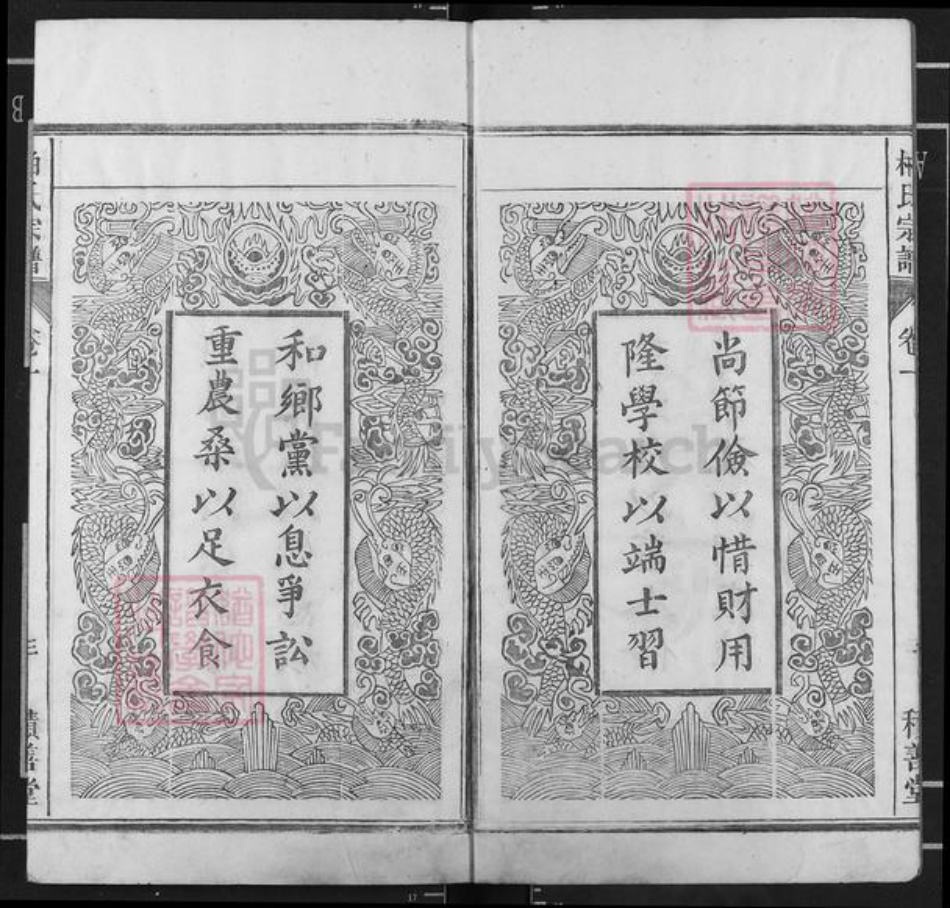 尚節儉以惜財用
隆學校以端士習
和鄉黨以息爭訟
重農桑以足衣食
氏宗譜
卷一
積善堂
FamilySearch